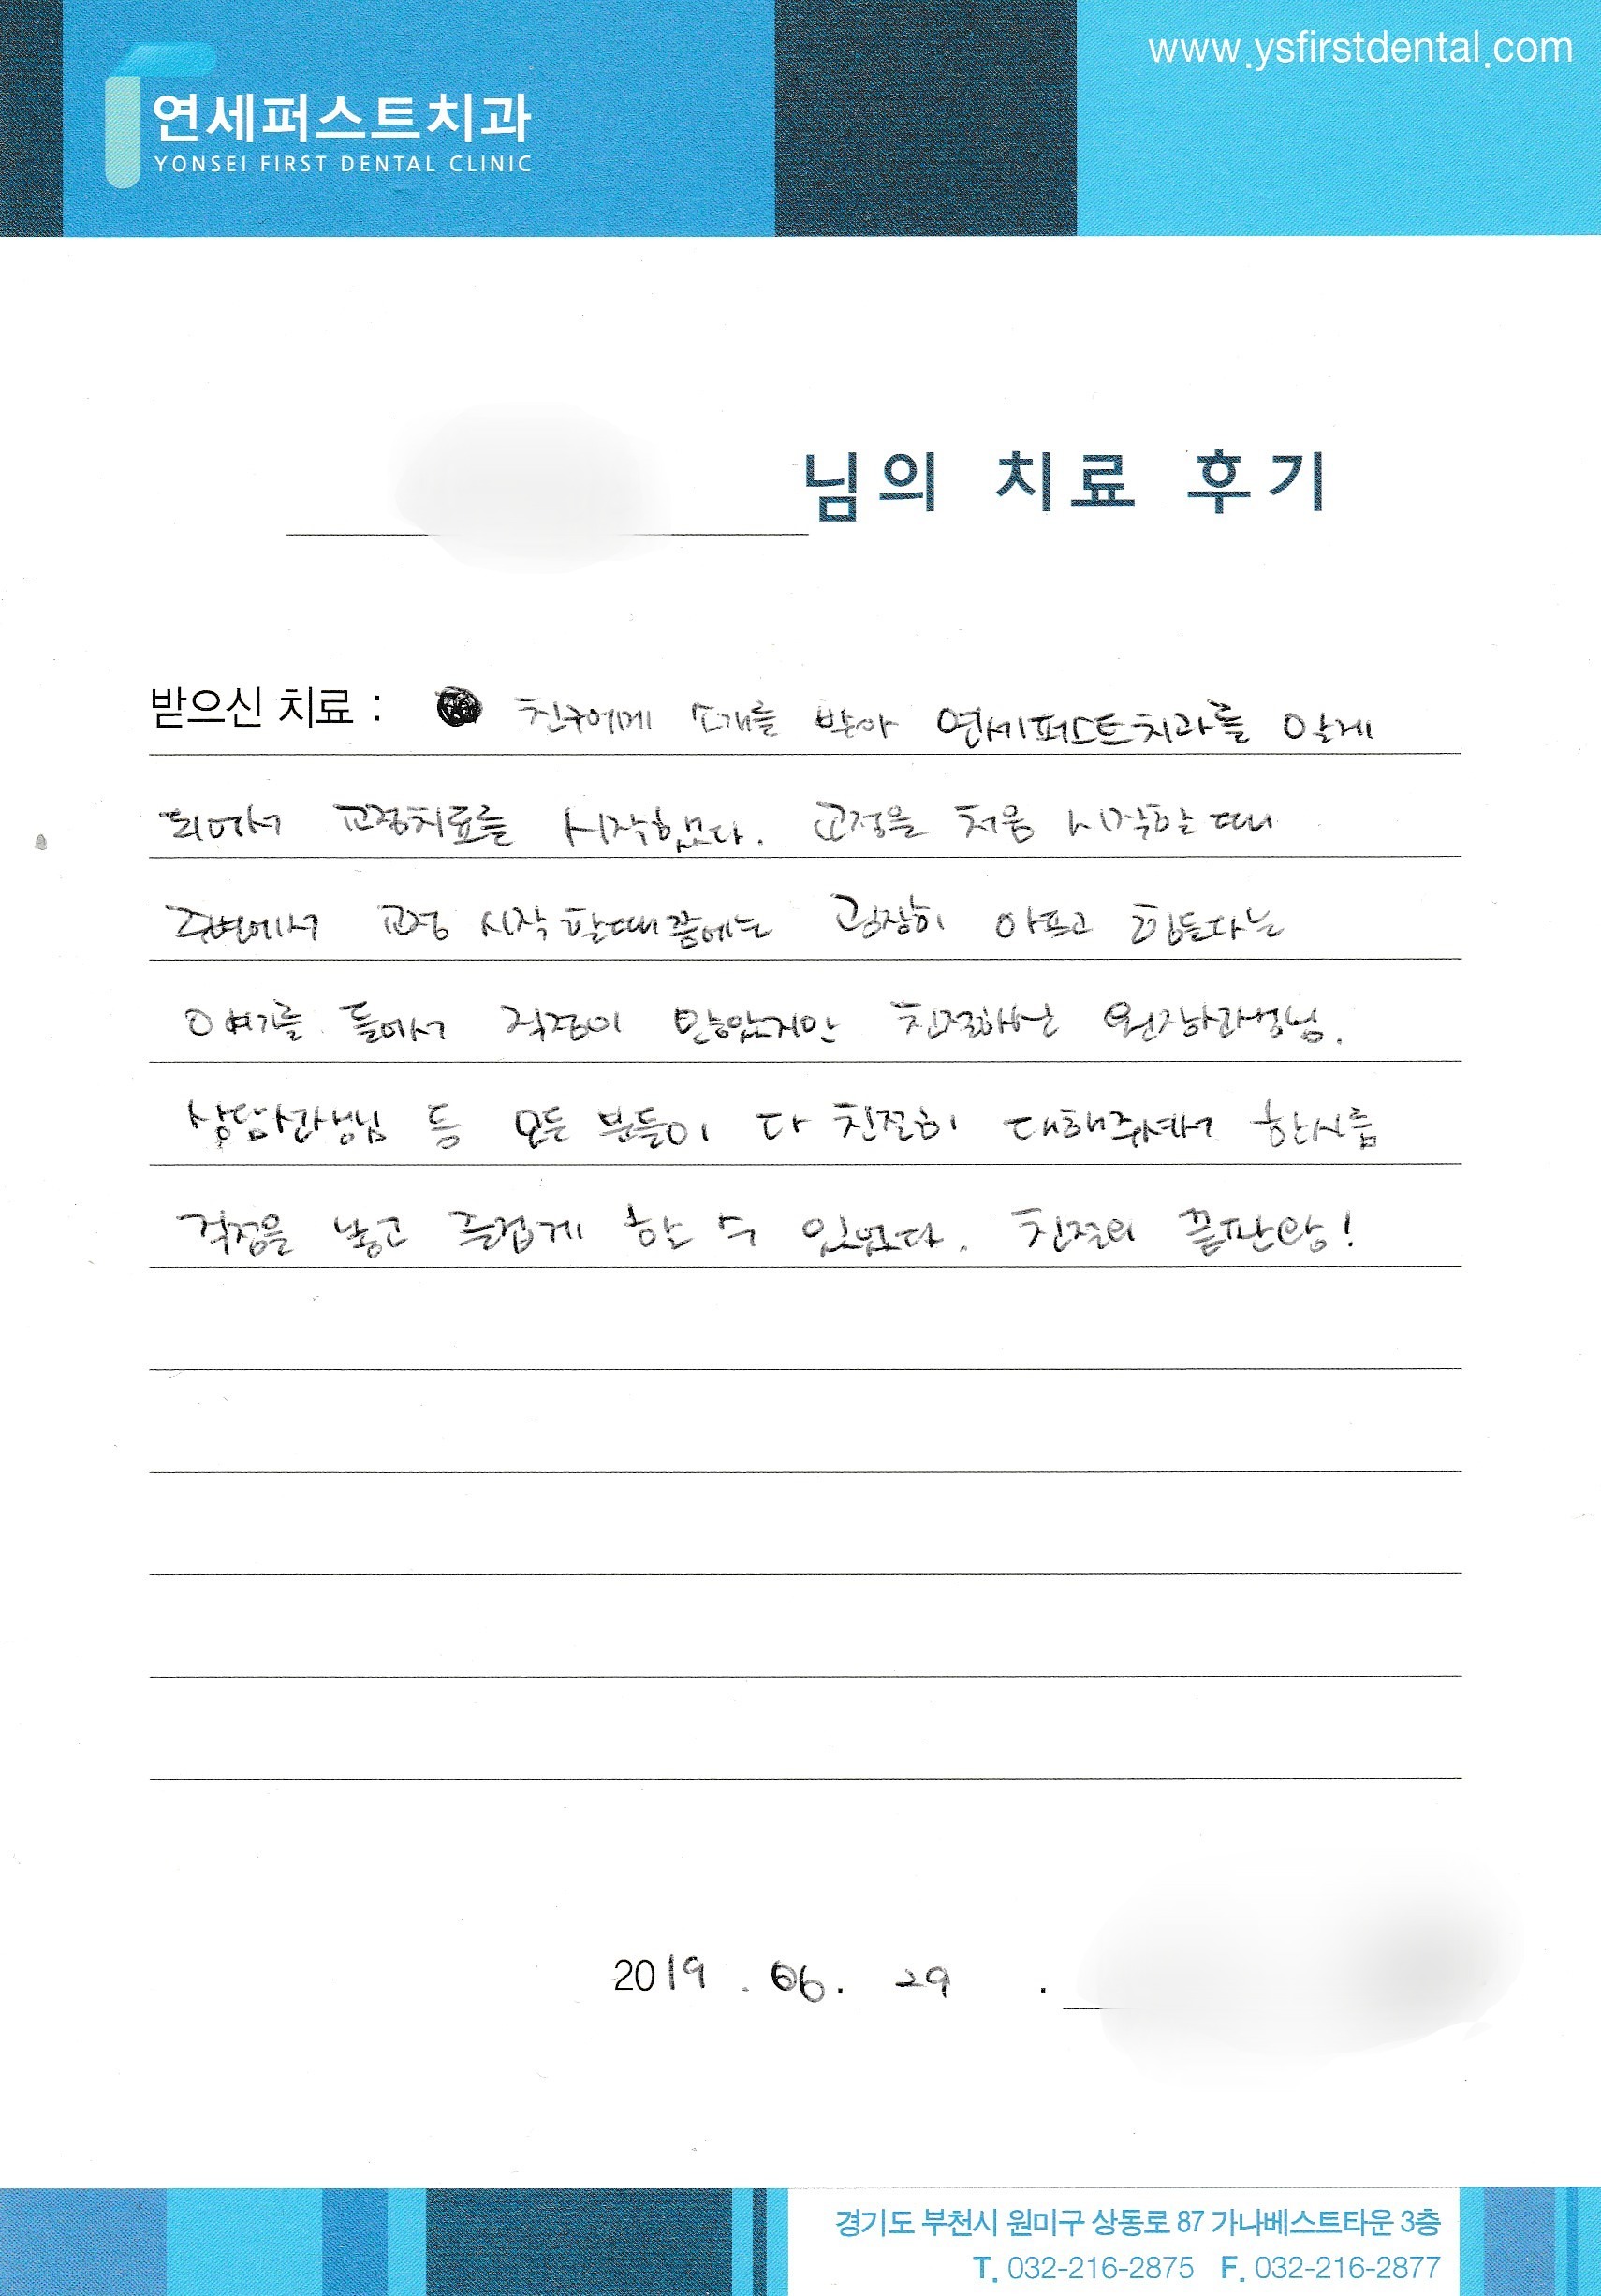 www.ysfirstdental.com
연세퍼스트치과
YONSEI FIRST DENTAL CLINIC
님의 치료 후기
받으신 치료 : 친구에게 소개를 받아 연세퍼스트치과를 알게
되어서 교정치료를 시작했다. 교정을 처음 시작할 때
주변에서 교정 시작 할때쯤에는 굉장히 아프고 힘들다는
이야기를 들어서 걱정이 많았지만 친절하신 원장선생님,
상담선생님 등 모든 분들이 다 친절히 대해주셔서 한시름
걱정을 놓고 즐겁게 할 수 있었다. 친절의 끝판왕!
2019 . 06 . 29 .
경기도 부천시 원미구 상동로 87 가나베스트타운 3층
T. 032-216-2875 F. 032-216-2877